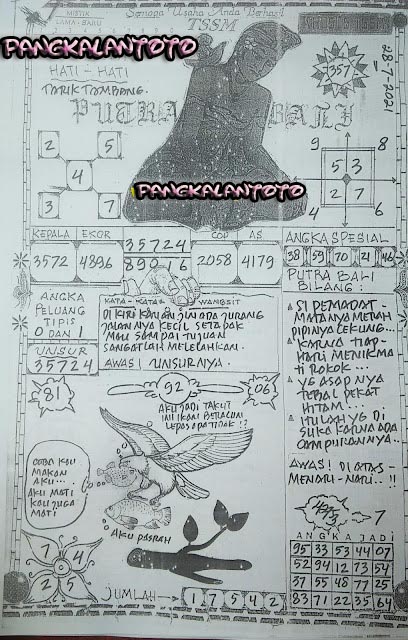 MISTIK
LAMA - BARU
Semoga Usaha Anda Berhasil
TSSM
PANGKALANTOTO
HATI - HATI
TARIK TAMBANG.
PUTRA BALI
357
28-7-2021
2 5
4
3 7
PANGKALANTOTO
9 8
5 3
2 7
4 6
KEPALA EKOR
3572 4896
35724
89016
COP AS
2058 4179
ANGKA SPESIAL
38 59 70 21 46
PUTRA BALI
BILANG :
ANGKA
PELUANG
TIPIS
0 DAN 1
UNSUR
35724
KATA - KATA WANGSIT
DI KIRI KANAN JIN ADA JURANG
JALANNYA KECIL SETAPAK
MAU SAMPAI TUJUAN
SANGATLAH MELELAHKAN.
AWAS! UNSURNYA.
SI PEMADAT -
MATANYA MERAH
PIPINYA CEKUNG...
KARNA TIAP-
HARI MENIKMA
TI ROKOK...
YG ASAPNYA
TEBAL PEKAT
HITAM...
ITULAH YG DI
SUKA KARNA ADA
CAMPURANNYA..
AWAS! DI ATAS -
MENARI - NARI.. !!
81
92
06
AKU JADI TAKUT
INI IKAN BELUM
LEPAS APA TIDAK !?
COBA KAU
MAKAN
AKU...
AKU MATI
KAU JUGA
MATI
AKU PASRAH
7 4
2 5
JUMLAH
1 7 5 4 2
7
ANGKA JADI
95 33 53 44 07
52 94 12 73 54
37 55 48 77 25
83 71 22 35 64